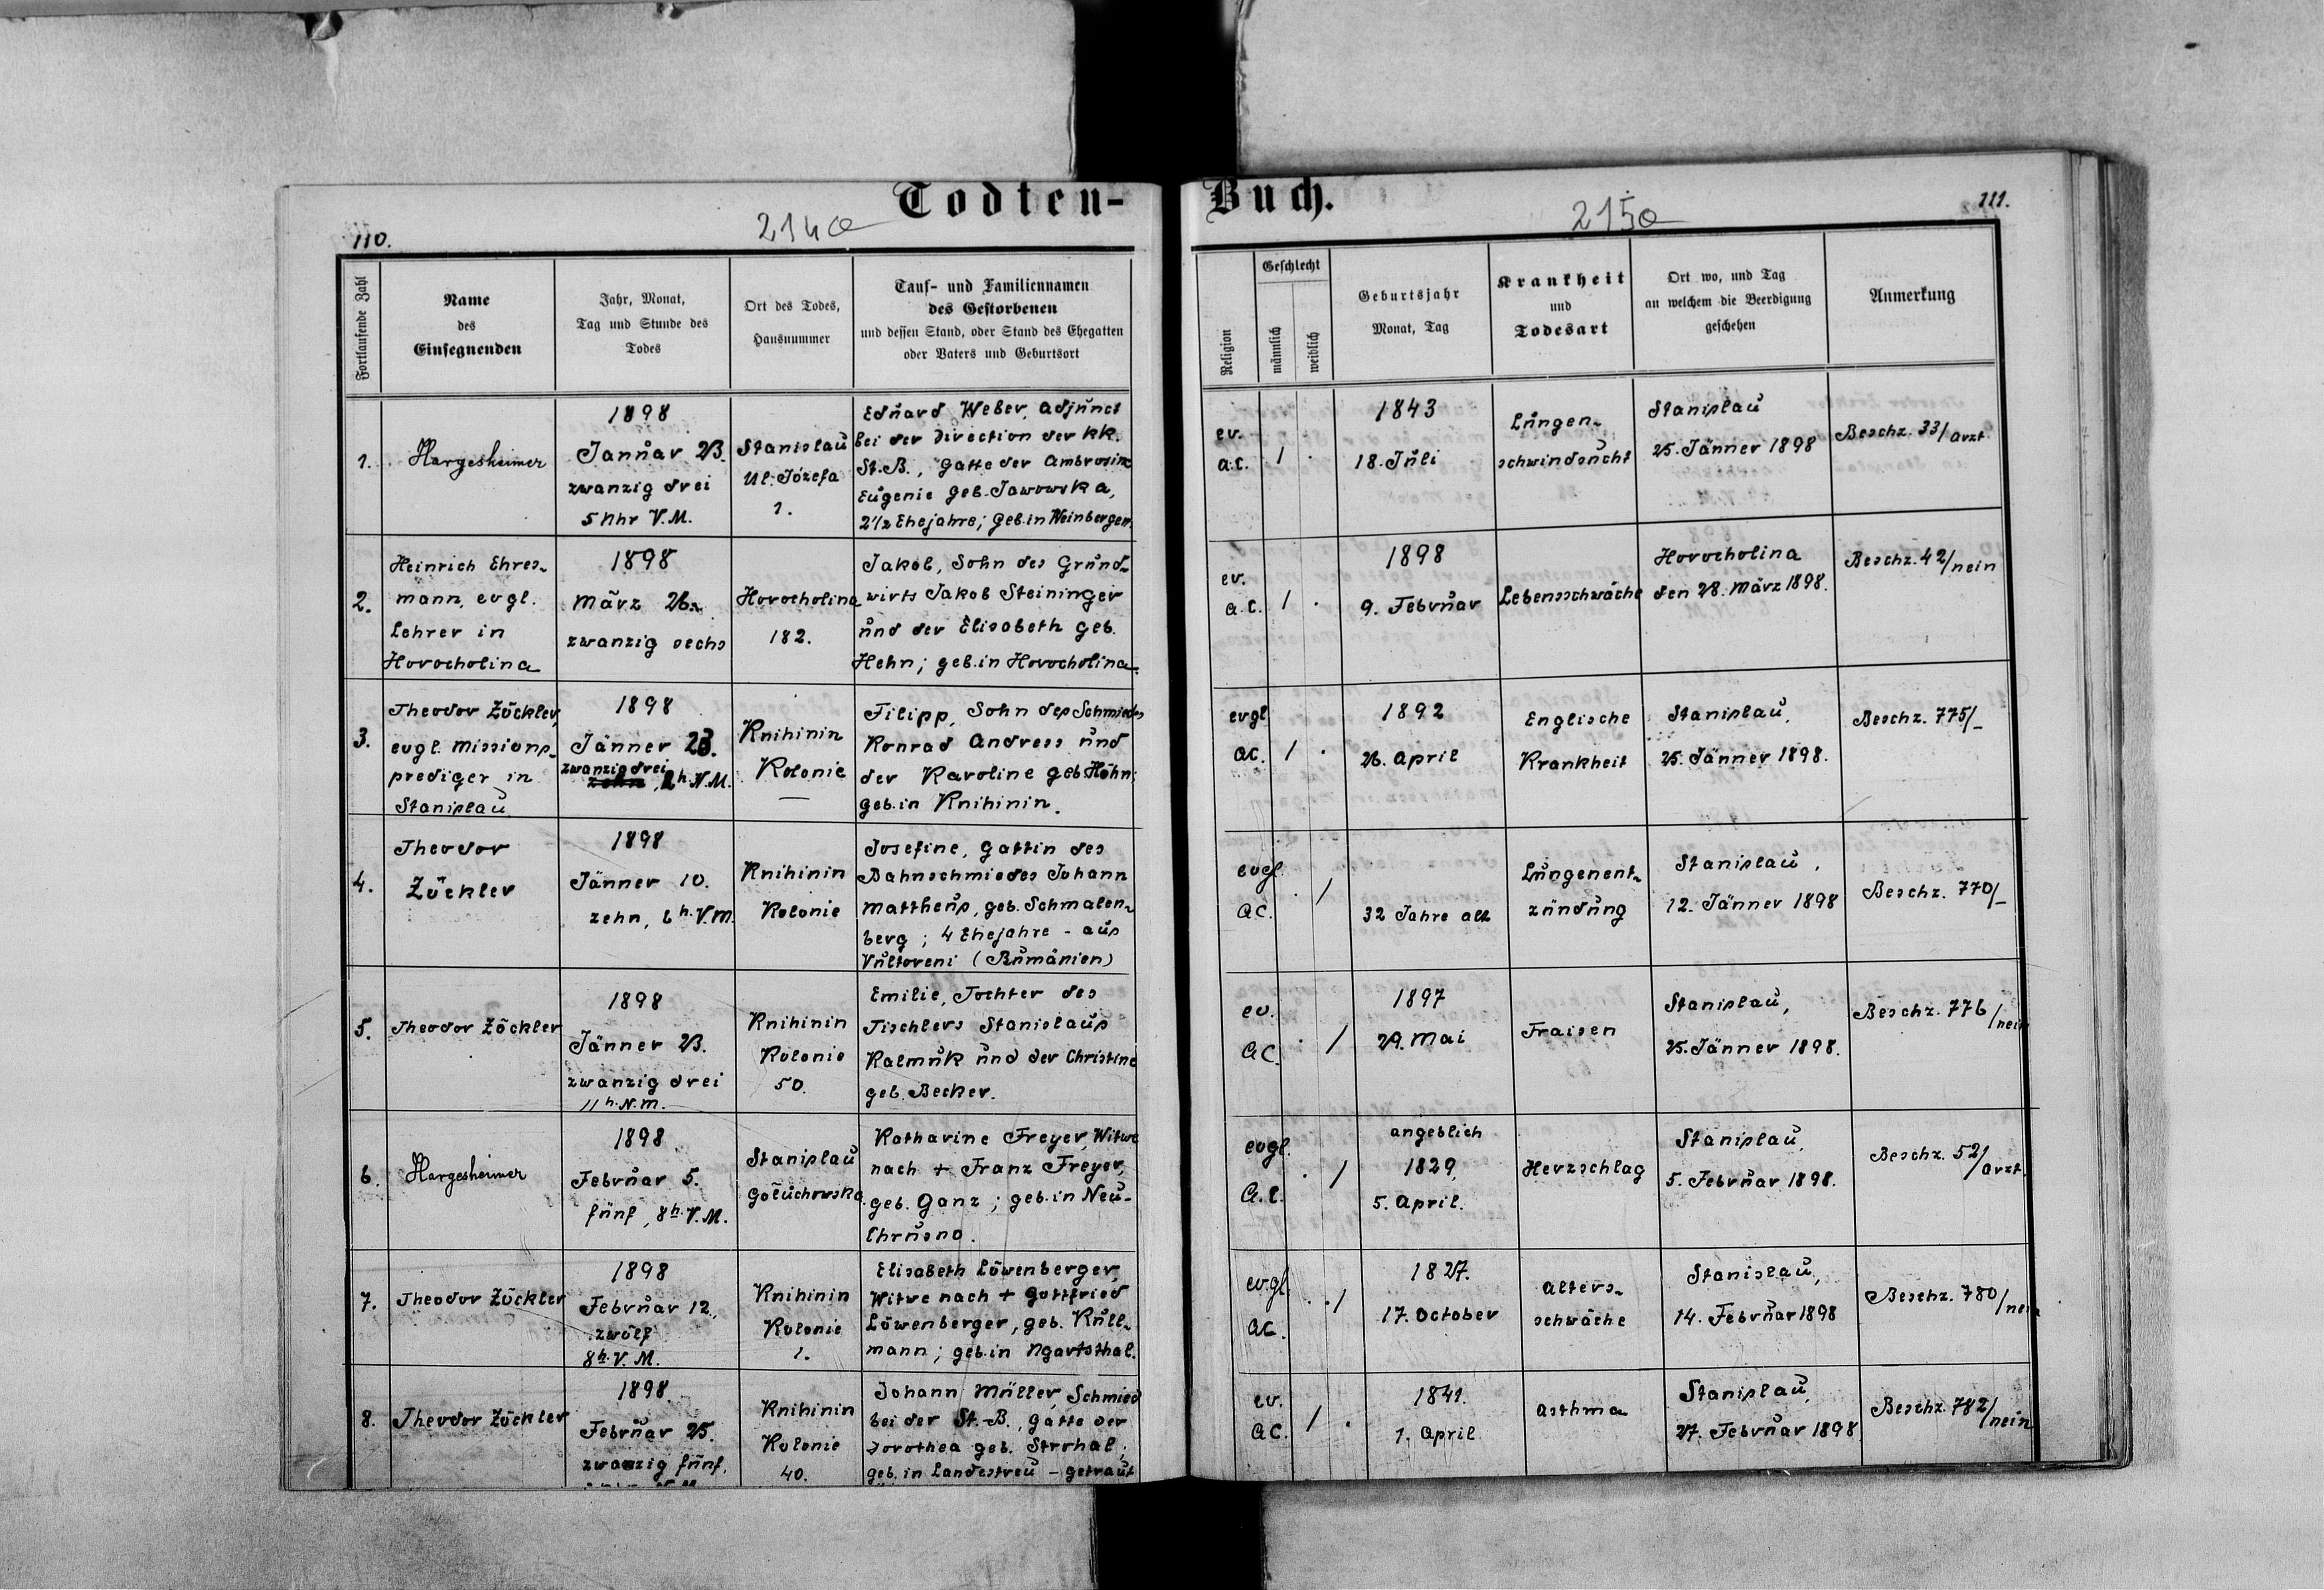 Todten-
110.
214a
Fortlaufende Zahl
Name
des
Einsegnenden
Jahr, Monat,
Tag und Stunde des
Todes
Ort des Todes,
Hausnummer
Tauf- und Familiennamen
des Gestorbenen
und dessen Stand, oder Stand des Ehegatten
oder Vaters und Geburtsort
1.
Hargesheimer
1898
Januar 23.
zwanzig drei
5 Uhr V.M.
Stanislau
Ul. Józefa
1.
Eduard Weber, Adjunct
bei der Direction der kk.
St.B., Gatte der Ambrosine
Eugenie geb. Jaworska,
2½ Ehejahre; geb. in Weinbergen.
2.
Heinrich Ehres-
mann, evgl.
Lehrer in
Horocholina
1898
März 26.
zwanzig sechs
Horocholina
182.
Jakob, Sohn des Grund-
wirts Jakob Steininger
und der Elisabeth geb.
Hehn; geb. in Horocholina.
3.
Theodor Zöckler,
evgl. Missions-
prediger in
Stanislau
1898
Jänner 23.
zwanzig drei
zehn, 2h. N.M.
Knihinin
Kolonie
—
Filipp, Sohn des Schmiedes
Konrad Andress und
der Karoline geb. Höhn;
geb. in Knihinin.
4.
Theodor
Zöckler
1898
Jänner 10.
zehn, 6h. V.M.
Knihinin
Kolonie
Josefine, Gattin des
Bahnschmiedes Johann
Mattheus, geb. Schmalen-
berg; 4 Ehejahre - aus
Vultoreni (Rumänien)
5.
Theodor Zöckler
1898
Jänner 23.
zwanzig drei
11h. N.M.
Knihinin
Kolonie
50.
Emilie, Tochter des
Tischlers Stanislaus
Kalmuk und der Christine
geb. Becker.
6.
Hargesheimer
1898
Februar 5.
fünf, 8h. V.M.
Stanislau
Gołuchowska.
Katharine Freyer, Witwe
nach + Franz Freyer,
geb. Ganz; geb. in Neu-
Chrusno.
7.
Theodor Zöckler
1898
Februar 12.
zwölf
8h. V.M.
Knihinin
Kolonie
1.
Elisabeth Löwenberger,
Witwe nach + Gottfried
Löwenberger, geb. Kull-
mann; geb. in Ugartsthal.
8.
Theodor Zöckler
1898
Februar 25.
zwanzig fünf,
Knihinin
Kolonie
40.
Johann Müller, Schmied
bei der St.-B., Gatte der
Dorothea geb. Strohal;
geb. in Landestreu - getraut
Buch.
215a
111.
Religion
Geschlecht
männlich
weiblich
Geburtsjahr
Monat, Tag
Krankheit
und
Todesart
Ort wo, und Tag
an welchem die Beerdigung
geschehen
Anmerkung
ev.
a.c.
1 .
1843
18. Juli
Lungen-
schwindsucht
Stanislau
25. Jänner 1898
Beschz. 33/Arzt
ev.
a.c.
1 .
1898
9. Februar
Lebensschwäche
Horocholina
den 28. März 1898.
Beschz. 42/nein
evgl.
AC.
1 .
1892
26. April
Englische
Krankheit
Stanislau,
25. Jänner 1898.
Beschz. 775/-
evgl.
AC.
. 1
32 Jahre alt
Lungenent-
zündung
Stanislau,
12. Jänner 1898
Beschz. 770/-
ev.
AC.
. 1
1897
29. Mai
Fraisen
Stanislau,
25. Jänner 1898.
Beschz. 776/nein
evgl.
A.C.
. 1
angeblich
1829,
5. April.
Herzschlag
Stanislau,
5. Februar 1898.
Beschz. 52/Arzt.
evgl.
AC.
. 1
1827.
17. October
Alters-
schwäche
Stanislau,
14. Februar 1898
Beschz. 780/nein
ev.
AC.
1 .
1841.
1. April
Asthma
Stanislau,
27. Februar 1898
Beschz. 782/nein